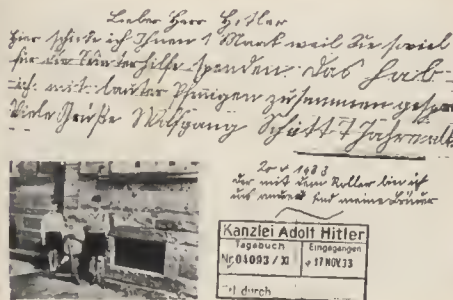 Lieber Herr Hitler
hier schicke ich Ihnen 1 Mark weil Sie soviel
für die Winterhilfe spenden. Das hab
ich mit lauter Pfennigen zusammen gespa
Viele Grüße Wolfgang Schütt 7 Jahre alt
1933
der mit dem Roller bin ich
die andern sind meine Brüder
Kanzlei Adolf Hitler
Tagebuch
Eingegangen
Nr. 04093 / XI
17 NOV. 33
durch